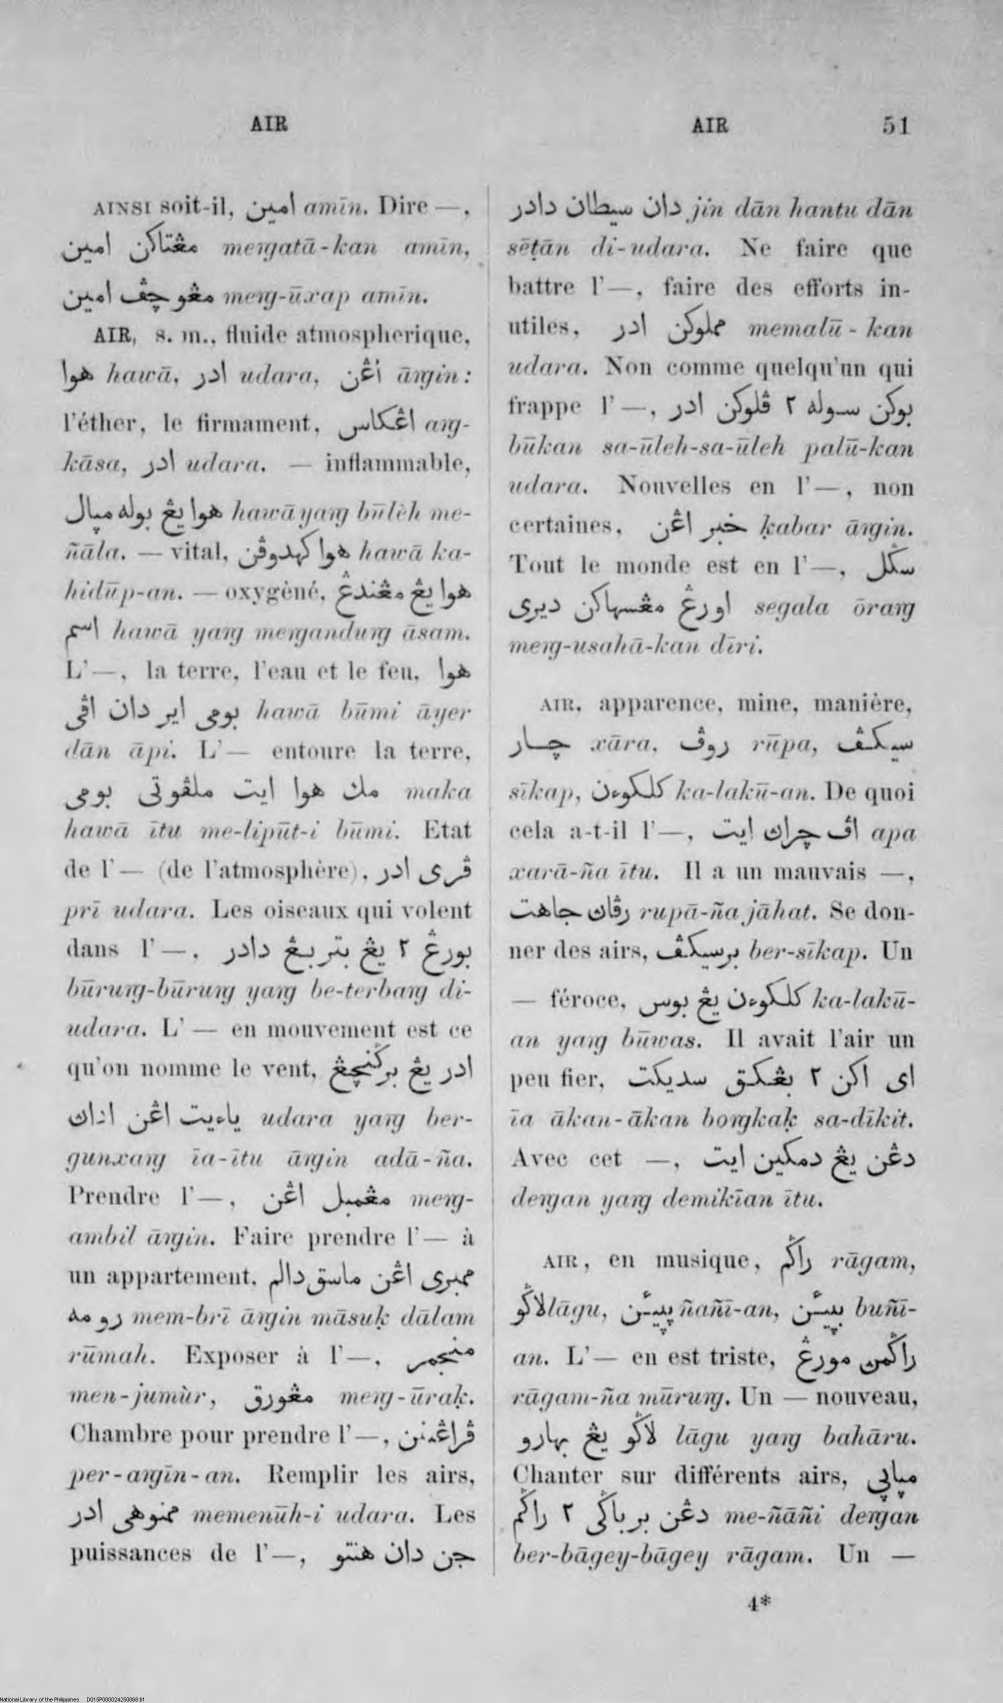 AIR
AIR 51
AINSI soit-il, امين amīn. Dire —,
مڠتاكن امين meṅgatā-kan amīn,
مڠوچڤ امين meṅg-ūxap amīn.
AIR, s. m., fluide atmospherique,
هوا hawā, ادر udara, اڠن āṅgin:
l'éther, le firmament, اڠكاس aṅg-
kāsa, ادر udara. — inflammable,
هوا يڠ بوله مپال hawā yaṅg būlèh me-
ñāla. — vital, هوا كهدوڤن hawā ka-
hidūp-an. — oxygèné, هوا يڠ مڠندڠ
اسم hawā yaṅg meṅganduṅg āsam.
L'—, la terre, l'eau et le feu, هوا
بومي اير دان اڤي hawā būmi āyer
dān āpi. L'— entoure la terre,
مك هوا ايت ملڤوتي بومي maka
hawā ītu me-lipūt-i būmi. Etat
de l'— (de l'atmosphère), ڤري ادر
prī udara. Les oiseaux qui volent
dans l'—, بورڠ ٢ يڠ بتربڠ دادر
būruṅg-būruṅg yaṅg be-terbaṅg di-
udara. L'— en mouvement est ce
qu'on nomme le vent, ادر يڠ برݢنچڠ
ياءيت اڠن اداڽ udara yaṅg ber-
gunxaṅg īa-ītu āṅgin adā-ña.
Prendre l'—, مڠمبل اڠن meṅg-
ambil āṅgin. Faire prendre l'— à
un appartement, ممبري اڠن ماسق دالم
رومه mem-brī āṅgin māsuḳ dālam
rūmah. Exposer à l'—, منجمر
men-jumùr, مڠورق meṅg-ūraḳ.
Chambre pour prendre l'—, ڤراڠنن
per-aṅgīn-an. Remplir les airs,
ممنوهي ادر memenūh-i udara. Les
puissances de l'—, جن دان هنتو
دان سيطان دادر jin dān hantu dān
sēṭān di-udara. Ne faire que
battre l'—, faire des efforts in-
utiles, مملوكن ادر memalū-kan
udara. Non comme quelqu'un qui
frappe l'—, بوكن سوله ٢ ڤلوكن ادر
būkan sa-ūleh-sa-ūleh palū-kan
udara. Nouvelles en l'—, non
certaines, خبر اڠن ḳabar āṅgin.
Tout le monde est en l'—, سݢل
اورڠ مڠسهاكن ديري segala ōraṅg
meṅg-usahā-kan dīri.
AIR, apparence, mine, manière,
چار xāra, روڤ rūpa, سيكڤ
sīkap, كلكوءن ka-lakū-an. De quoi
cela a-t-il l'—, اڤ چراڽ ايت apa
xarā-ña ītu. Il a un mauvais —,
رڤاڽ جاهت rupā-ña jāhat. Se don-
ner des airs, برسيكڤ ber-sīkap. Un
— féroce, كلكوءن يڠ بوس ka-lakū-
an yaṅg būwas. Il avait l'air un
peu fier, اي اكن ٢ بڠكق سديكت
īa ākan-ākan boṅgkaḳ sa-dīkit.
Avec cet —, دڠن يڠ دمكين ايت
deṅgan yaṅg demikīan ītu.
AIR, en musique, راݢم rāgam,
لاݢو lāgu, پپيـٔن ñañī-an, بپيـٔن buñī-
an. L'— en est triste, راݢمن مورڠ
rāgam-ña mūruṅg. Un — nouveau,
لاݢو يڠ بهارو lāgu yaṅg bahāru.
Chanter sur différents airs, مپاپي
دڠن برباݢي ٢ راݢم me-ñāñi deṅgan
ber-bāgey-bāgey rāgam. Un —
4*
National Library of the Philippines